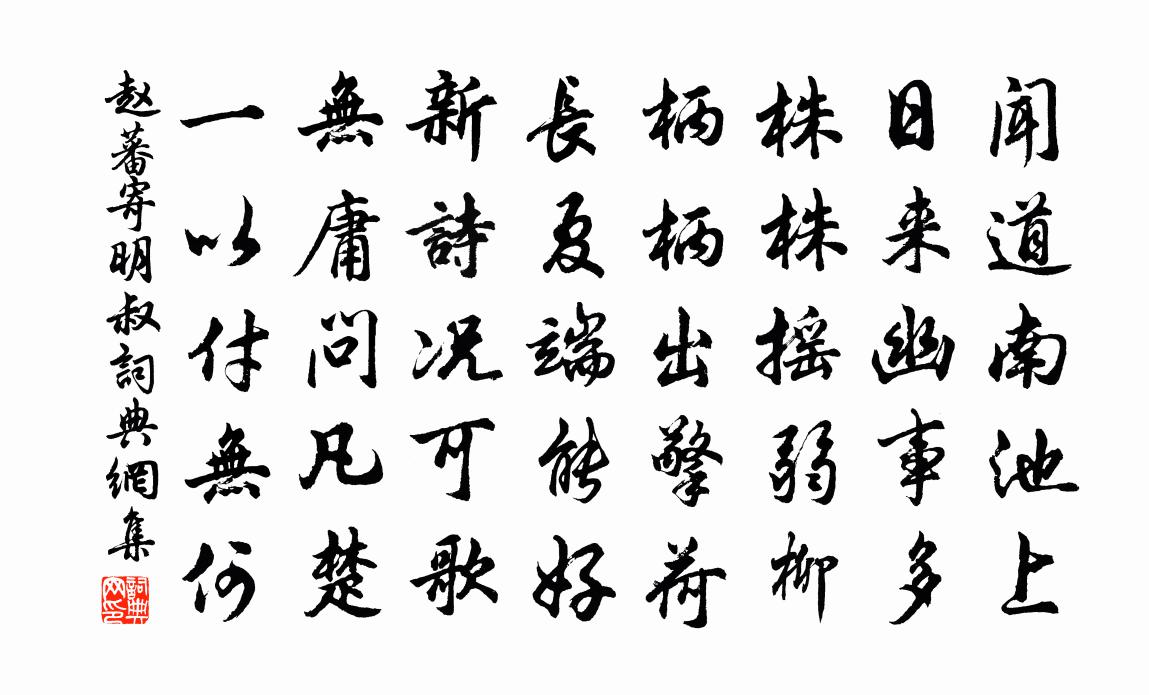 闻道南池上
日来幽事多
株株摇弱柳
柄柄出擎荷
長夏端能好
新詩况可歌
無庸問凡楚
一以付無何
赵蕃寄明叔詞典網集
詞典网印